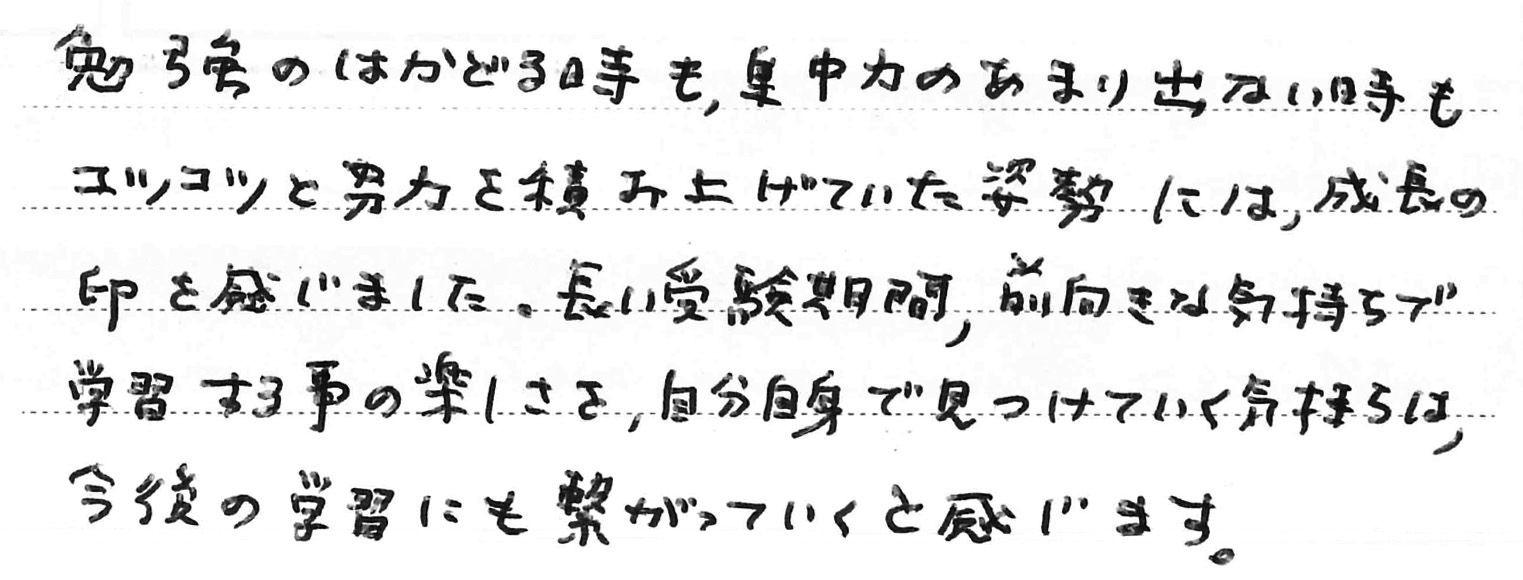 勉強のはかどる時も,集中力のあまり出ない時も
コツコツと努力を積み上げていた姿勢には,成長の
印を感じました。長い受験期間,前向きな気持ちで
学習する事の楽しさを,自分自身で見つけていく気持ちは,
今後の学習にも繋がっていくと感じます。